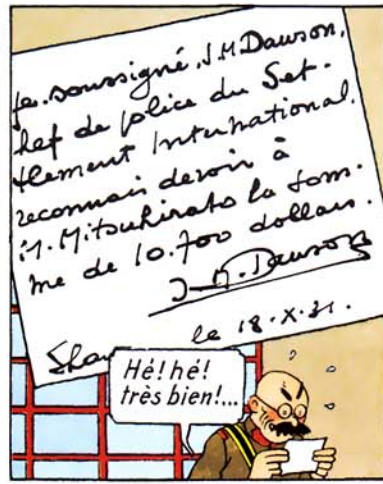 Je soussigné, J.M Dawson,
hef de police du Set-
tlement International,
reconnais devoir à
M. Mitsuhirato la som-
me de 10.700 dollars.
J-M. Dawson
Shan
le 18.X.31.
Hé! hé!
très bien!...